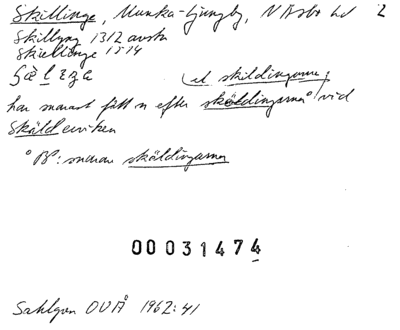 Skillinge, Munka-Ljungby, N Åsbo hd 2
Skillyng 1312 avskr
Skiellinge 1514
(el skildingarna;
har snarast fått n efter sköldingarna° vid
Skäldeviken
° B°: snarare skäldingarna
00031474
Sahlgren OUÅ 1962:41